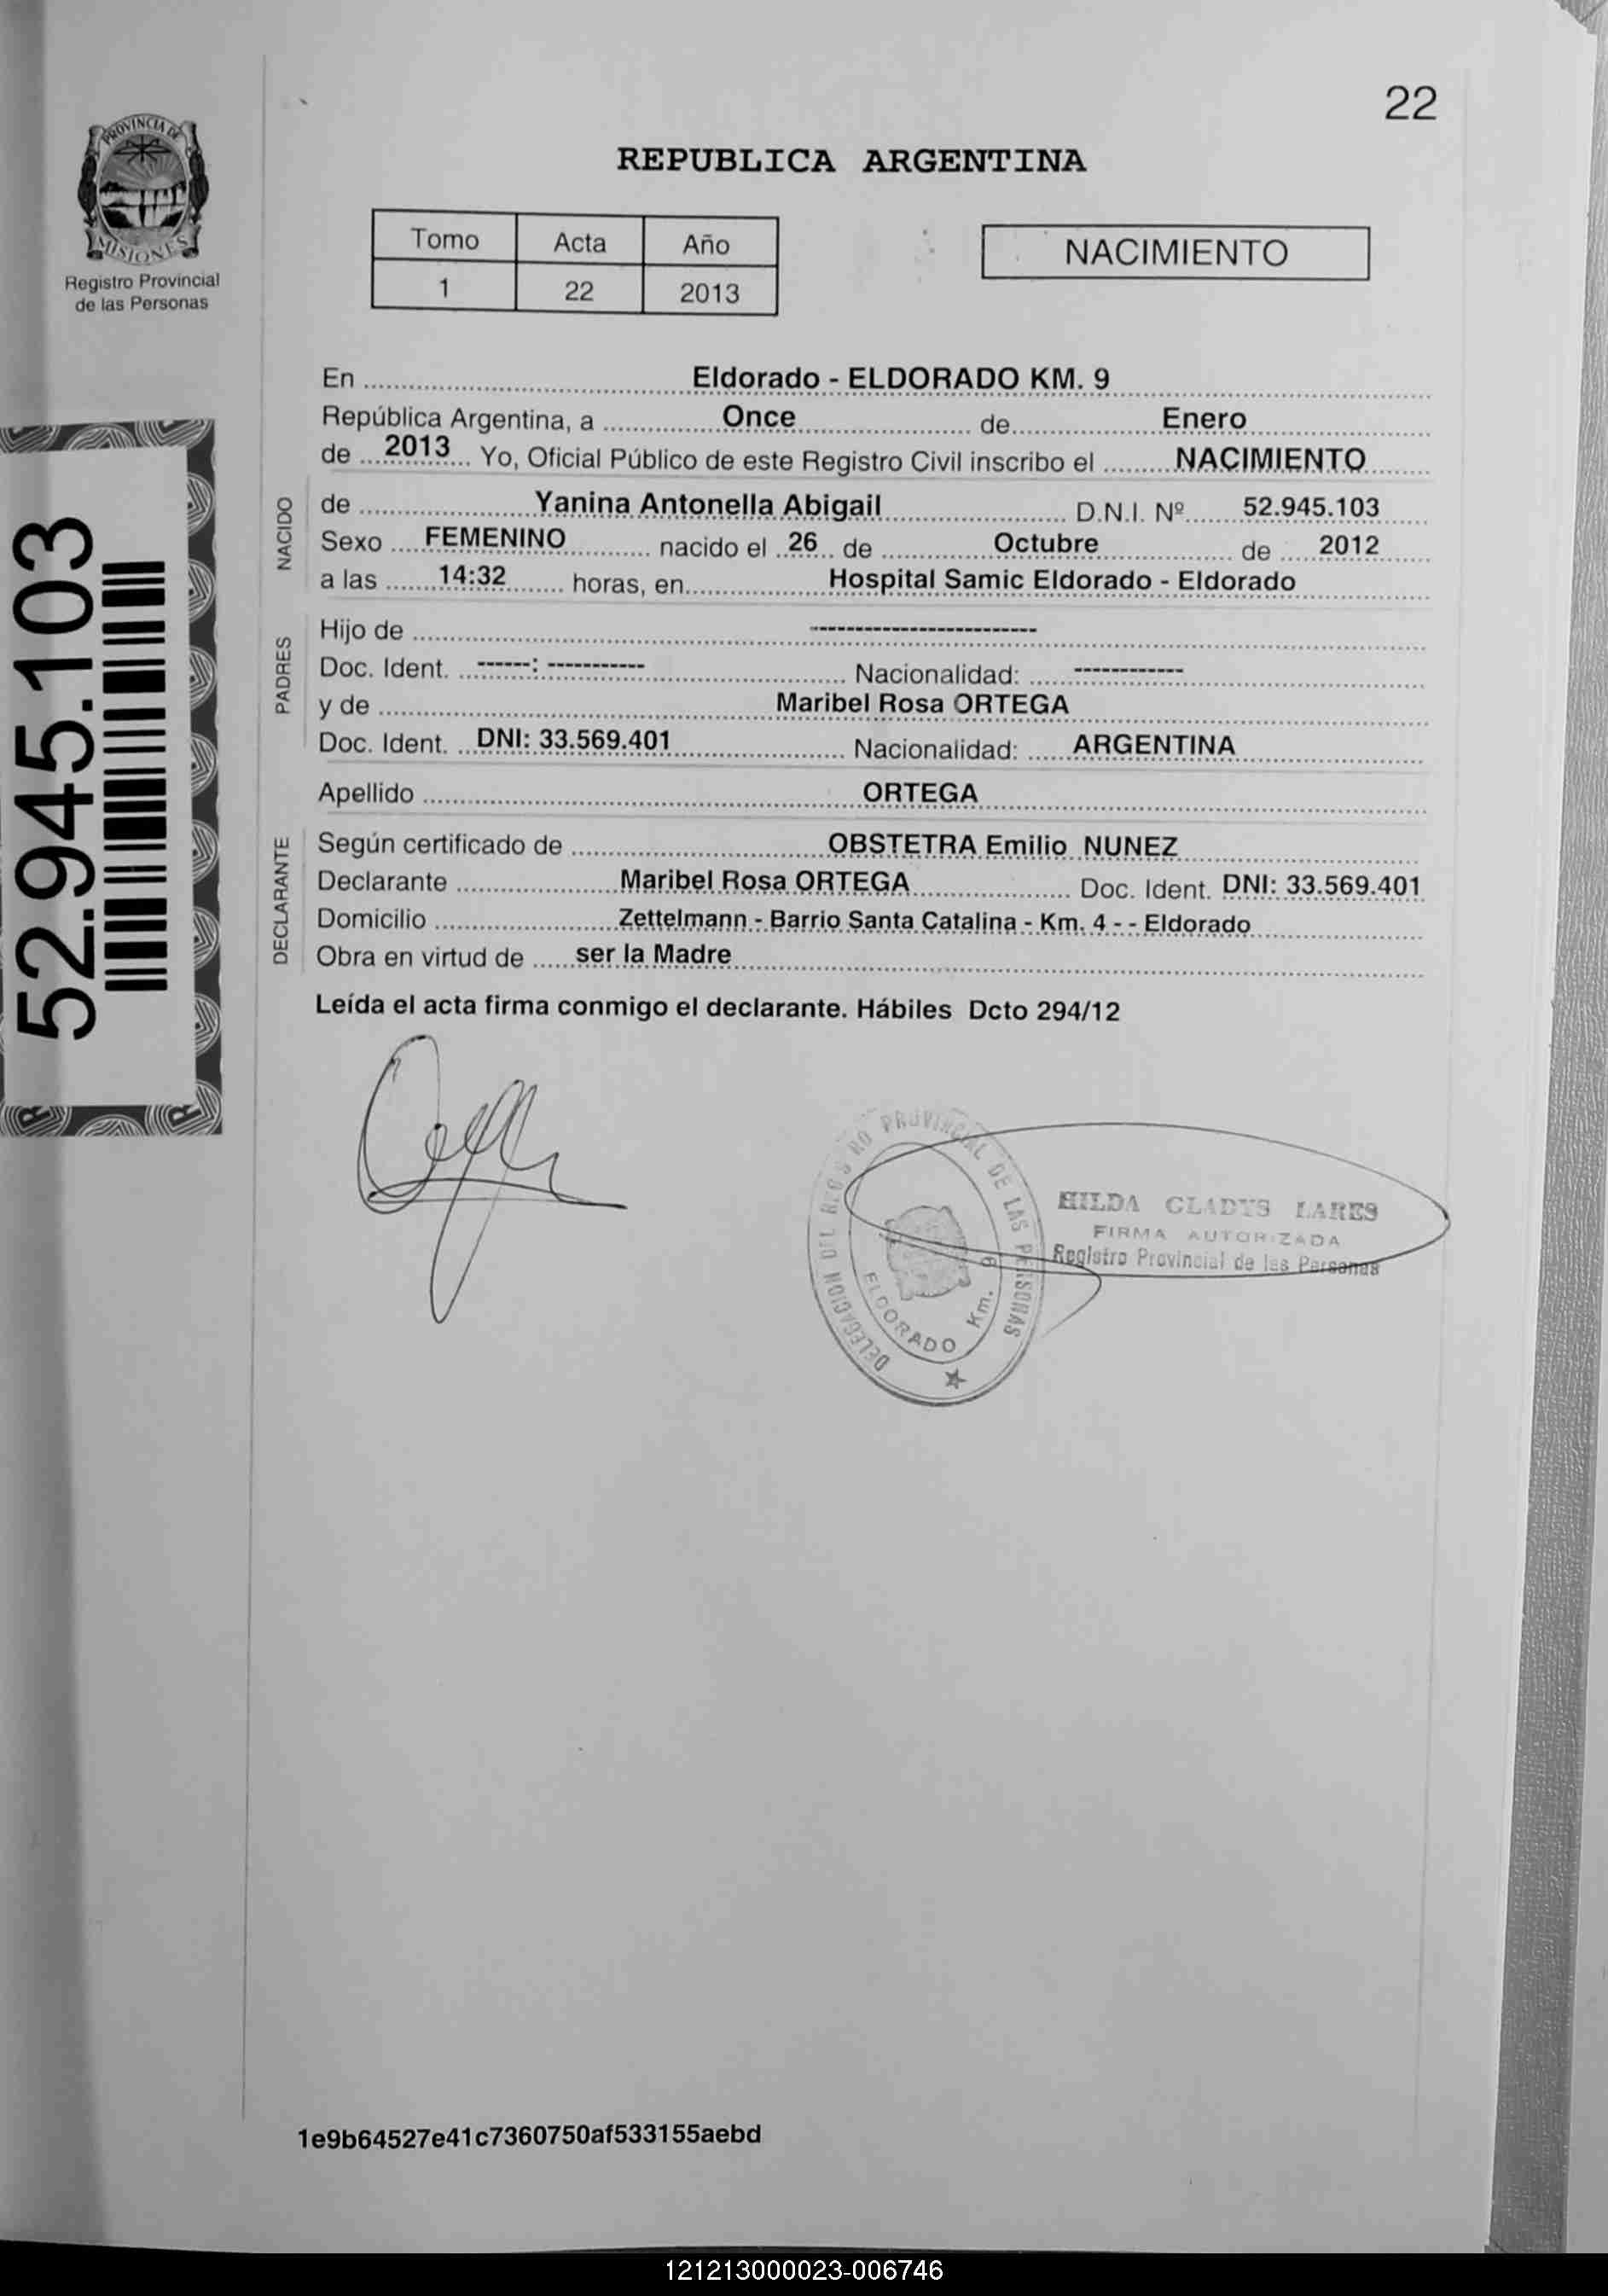 22
PROVINCIA DE
MISIONES
Registro Provincial
de las Personas
REPUBLICA ARGENTINA
Tomo Acta Año
1 22 2013
NACIMIENTO
52.945.103
En Eldorado - ELDORADO KM. 9
República Argentina, a Once de Enero
de 2013 Yo, Oficial Público de este Registro Civil inscribo el NACIMIENTO
NACIDO
de Yanina Antonella Abigail D.N.I. Nº 52.945.103
Sexo FEMENINO nacido el 26 de Octubre de 2012
a las 14:32 horas, en Hospital Samic Eldorado - Eldorado
PADRES
Hijo de -------------------------
Doc. Ident. ------: ----------- Nacionalidad: ------------
y de Maribel Rosa ORTEGA
Doc. Ident. DNI: 33.569.401 Nacionalidad: ARGENTINA
Apellido ORTEGA
DECLARANTE
Según certificado de OBSTETRA Emilio NUNEZ
Declarante Maribel Rosa ORTEGA Doc. Ident. DNI: 33.569.401
Domicilio Zettelmann - Barrio Santa Catalina - Km. 4 - - Eldorado
Obra en virtud de ser la Madre
Leída el acta firma conmigo el declarante. Hábiles Dcto 294/12
DELEGACION DEL REGISTRO PROVINCIAL DE LAS PERSONAS
ELDORADO Km. 9
HILDA GLADYS LARES
FIRMA AUTORIZADA
Registro Provincial de las Personas
1e9b64527e41c7360750af533155aebd
121213000023-006746